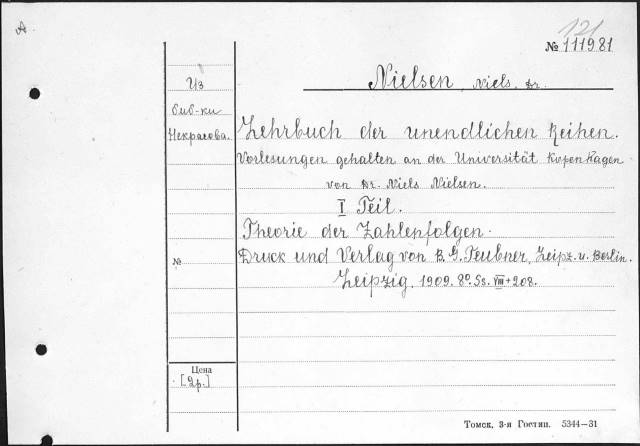 121
№ 111981
Nielsen, Niels, Dr.
Из
биб-ки
Некрасова.
Lehrbuch der unendlichen Reihen.
Vorlesungen gehalten an der Universität Kopenhagen
von Dr. Niels Nielsen.
I Teil.
Theorie der Zahlenfolgen.
Druck und Verlag von B. G. Teubner, Leipz. u. Berlin.
Leipzig. 1909. 8º. Ss. VIII + 208.
№
Цена
[2р.]
Томск, 3-я Гостип. 5344—31